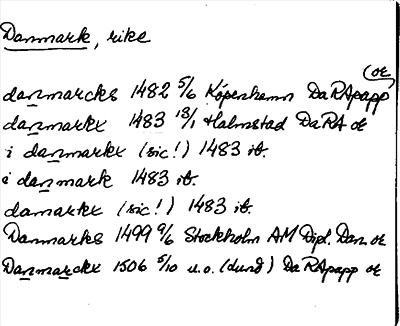 Danmark, rike
(or
danmarcks 1482 5/6 Köpenhamn DaRApapp
danmarkx 1483 13/1 Halmstad DaRA or
i danmarkx (sic!) 1483 ib.
i danmark 1483 ib.
damarkx (sic!) 1483 ib.
Danmarks 1499 9/6 Stockholm AM Dipl. Dan. or
Danmarckx 1506 5/10 u.o. (Lund) DaRApapp or